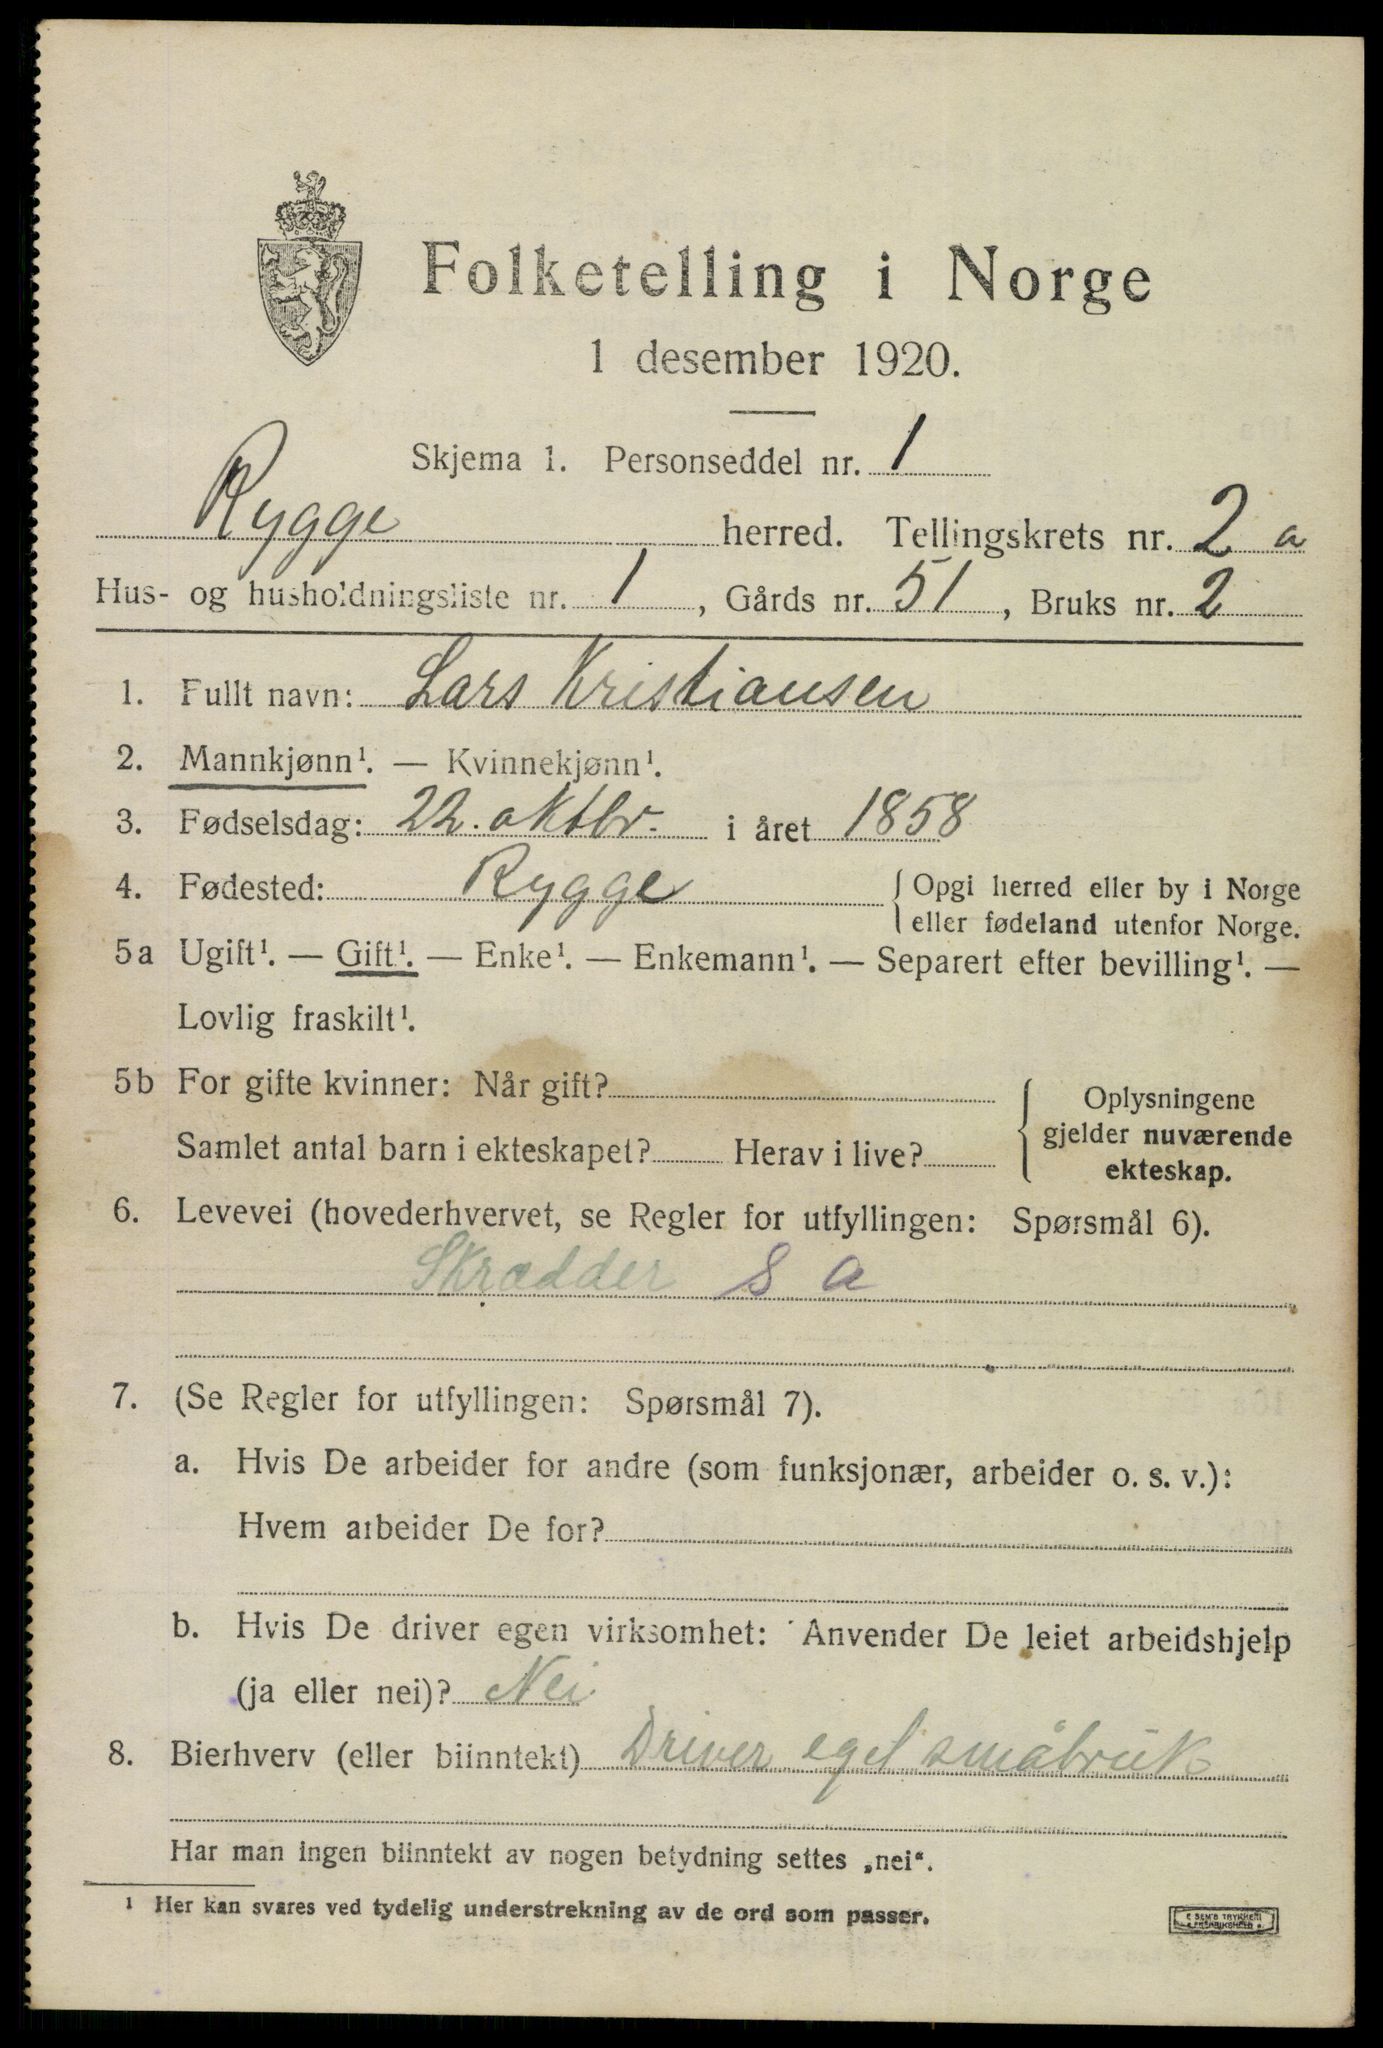 Folketelling i Norge
1 desember 1920.
Skjema 1. Personseddel nr. 1
Rygge herred. Tellingskrets nr. 2 a
Hus- og husholdningsliste nr. 1, Gårds nr. 51, Bruks nr. 2
1. Fullt navn: Lars Kristiansen
2. Mannkjønn¹. — Kvinnekjønn¹.
3. Fødselsdag: 22. oktbr. i året 1858
4. Fødested: Rygge { Opgi herred eller by i Norge
eller fødeland utenfor Norge.
5a Ugift¹. — Gift¹. — Enke¹. — Enkemann¹. — Separert efter bevilling¹. —
Lovlig fraskilt¹.
5b For gifte kvinner: Når gift?
Samlet antal barn i ekteskapet? Herav i live?
{ Oplysningene
gjelder nuværende
ekteskap.
6. Levevei (hovederhvervet, se Regler for utfyllingen: Spørsmål 6).
Skrædder S a
7. (Se Regler for utfyllingen: Spørsmål 7).
a. Hvis De arbeider for andre (som funksjonær, arbeider o. s. v.):
Hvem arbeider De for?
b. Hvis De driver egen virksomhet: Anvender De leiet arbeidshjelp
(ja eller nei)? Nei
8. Bierhverv (eller biinntekt) Driver eget småbruk
Har man ingen biinntekt av nogen betydning settes „nei“.
¹ Her kan svares ved tydelig understrekning av de ord som passer.